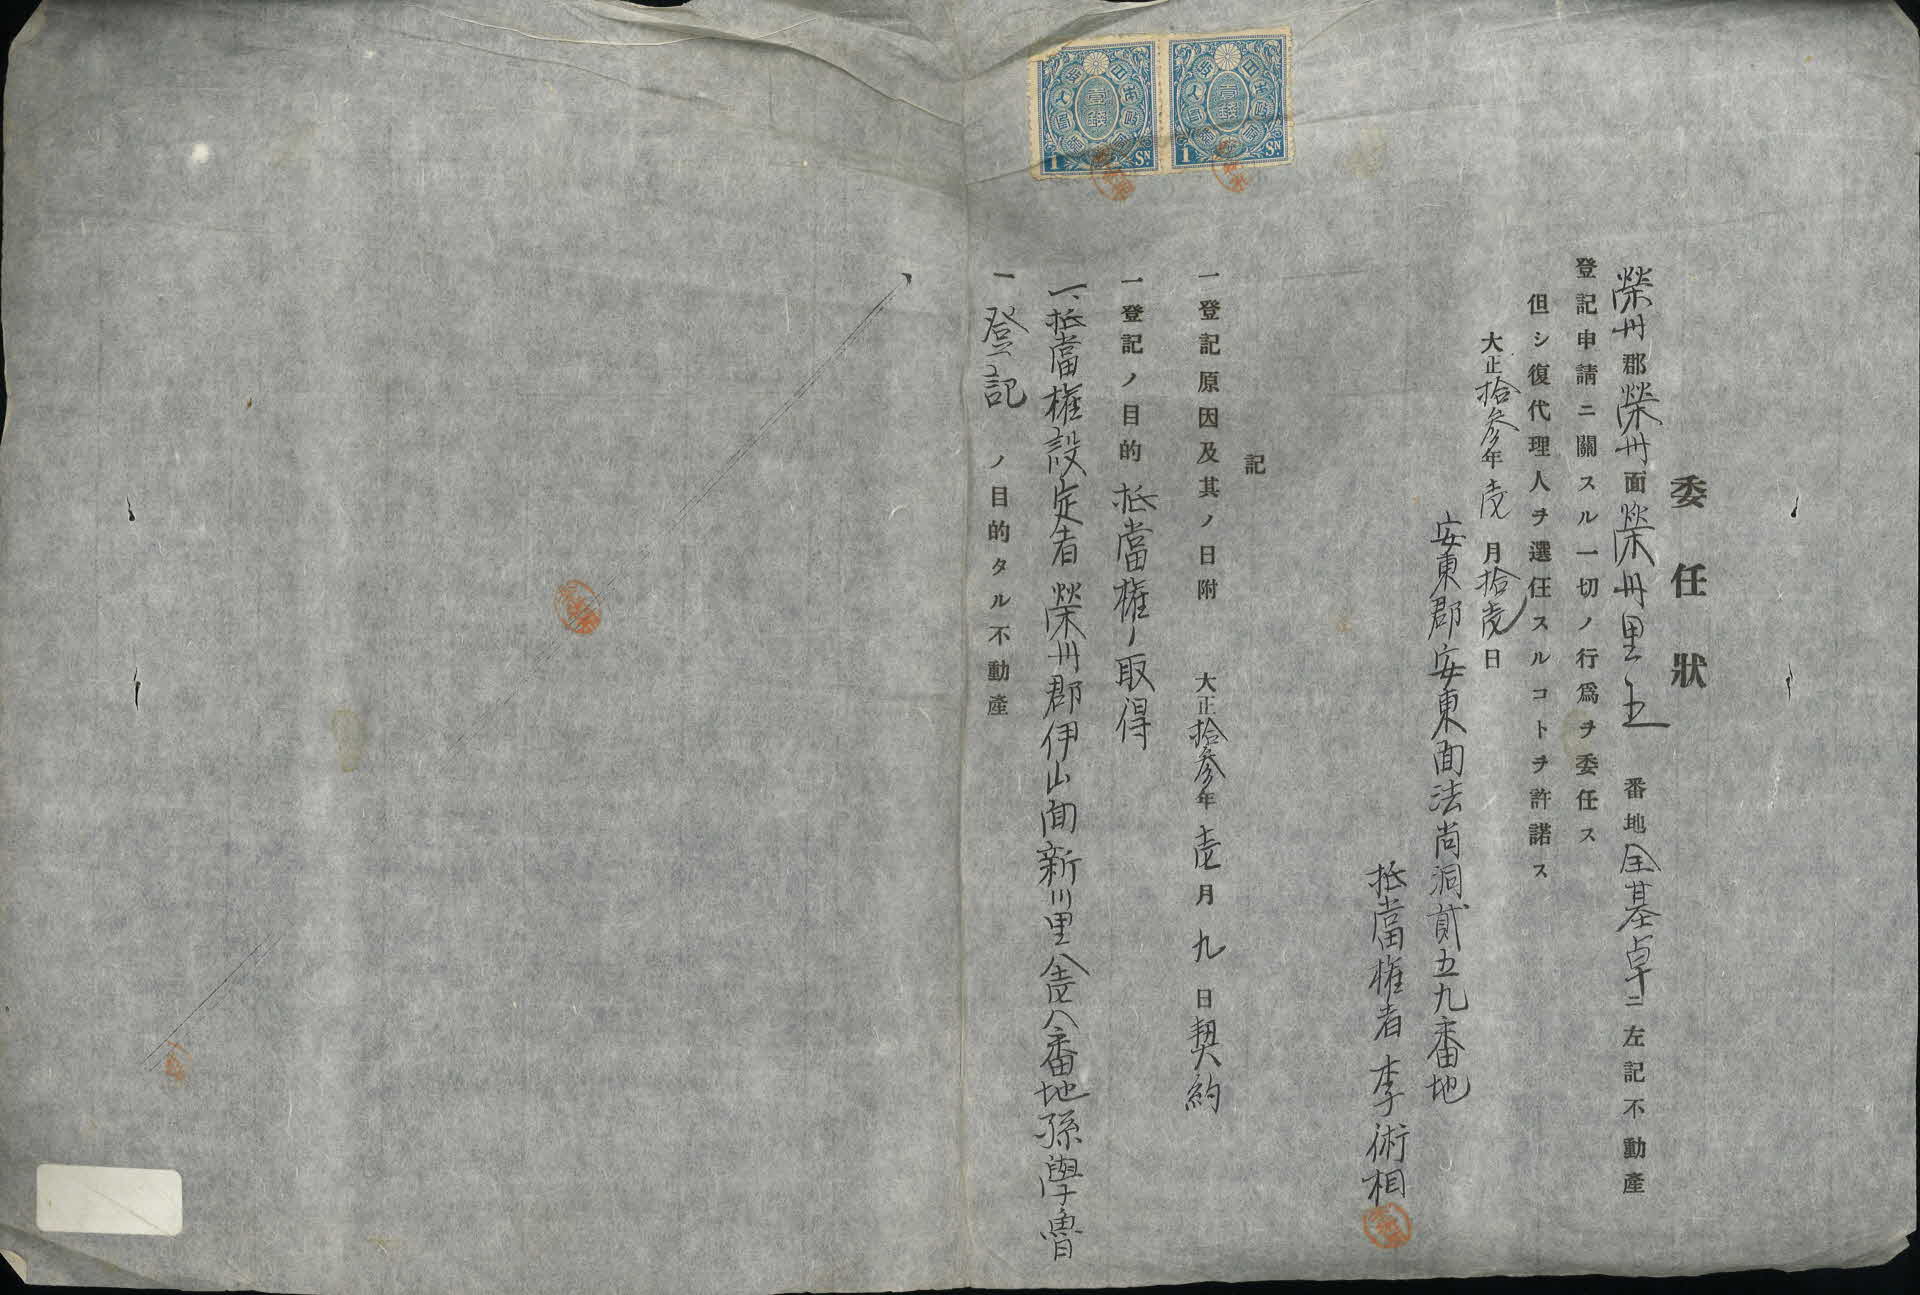 委任狀
榮州郡榮州面榮州里五番地全基卓ニ左記不動產
登記申請ニ關スル一切ノ行爲ヲ委任ス
但シ復代理人ヲ選任スルコトヲ許諾ス
大正拾參年壹月拾壹日
安東郡安東面法尚洞貳五九番地
抵當權者 李術相
記
一登記原因及其ノ日附 大正拾參年壹月九日契約
一登記ノ目的 抵當權ノ取得
一、抵當權設定者 榮州郡伊山面新川里 八番地孫學魯
一 登記ノ目的タル不動產
壹錢
1 SN.
壹錢
1 SN.